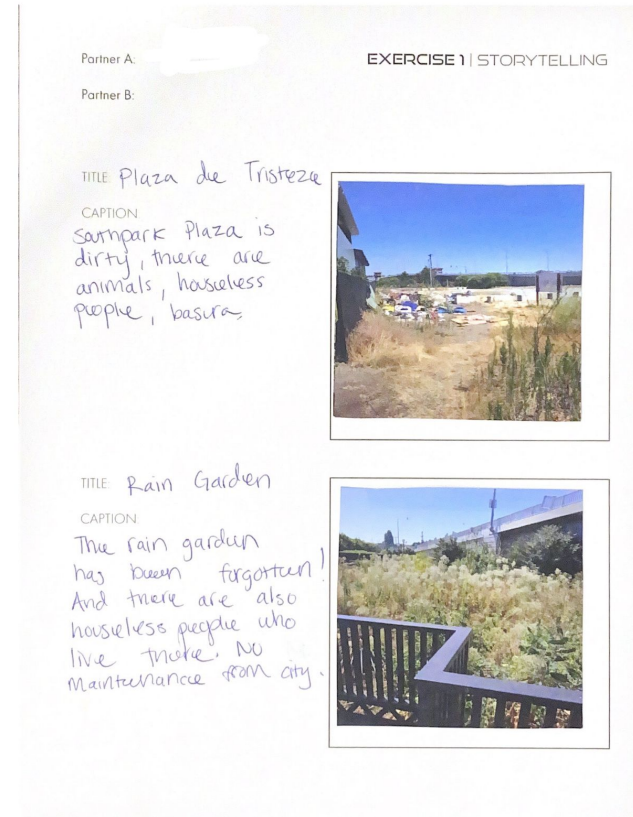 Partner A:
EXERCISE 1 | STORYTELLING
Partner B:
TITLE: Plaza de Tristeza
CAPTION
Southpark Plaza is
dirty, there are
animals, houseless
people, basura,
TITLE: Rain Garden
CAPTION
The rain garden
has been forgotten!
And there are also
houseless people who
live there. No
maintenance from city.